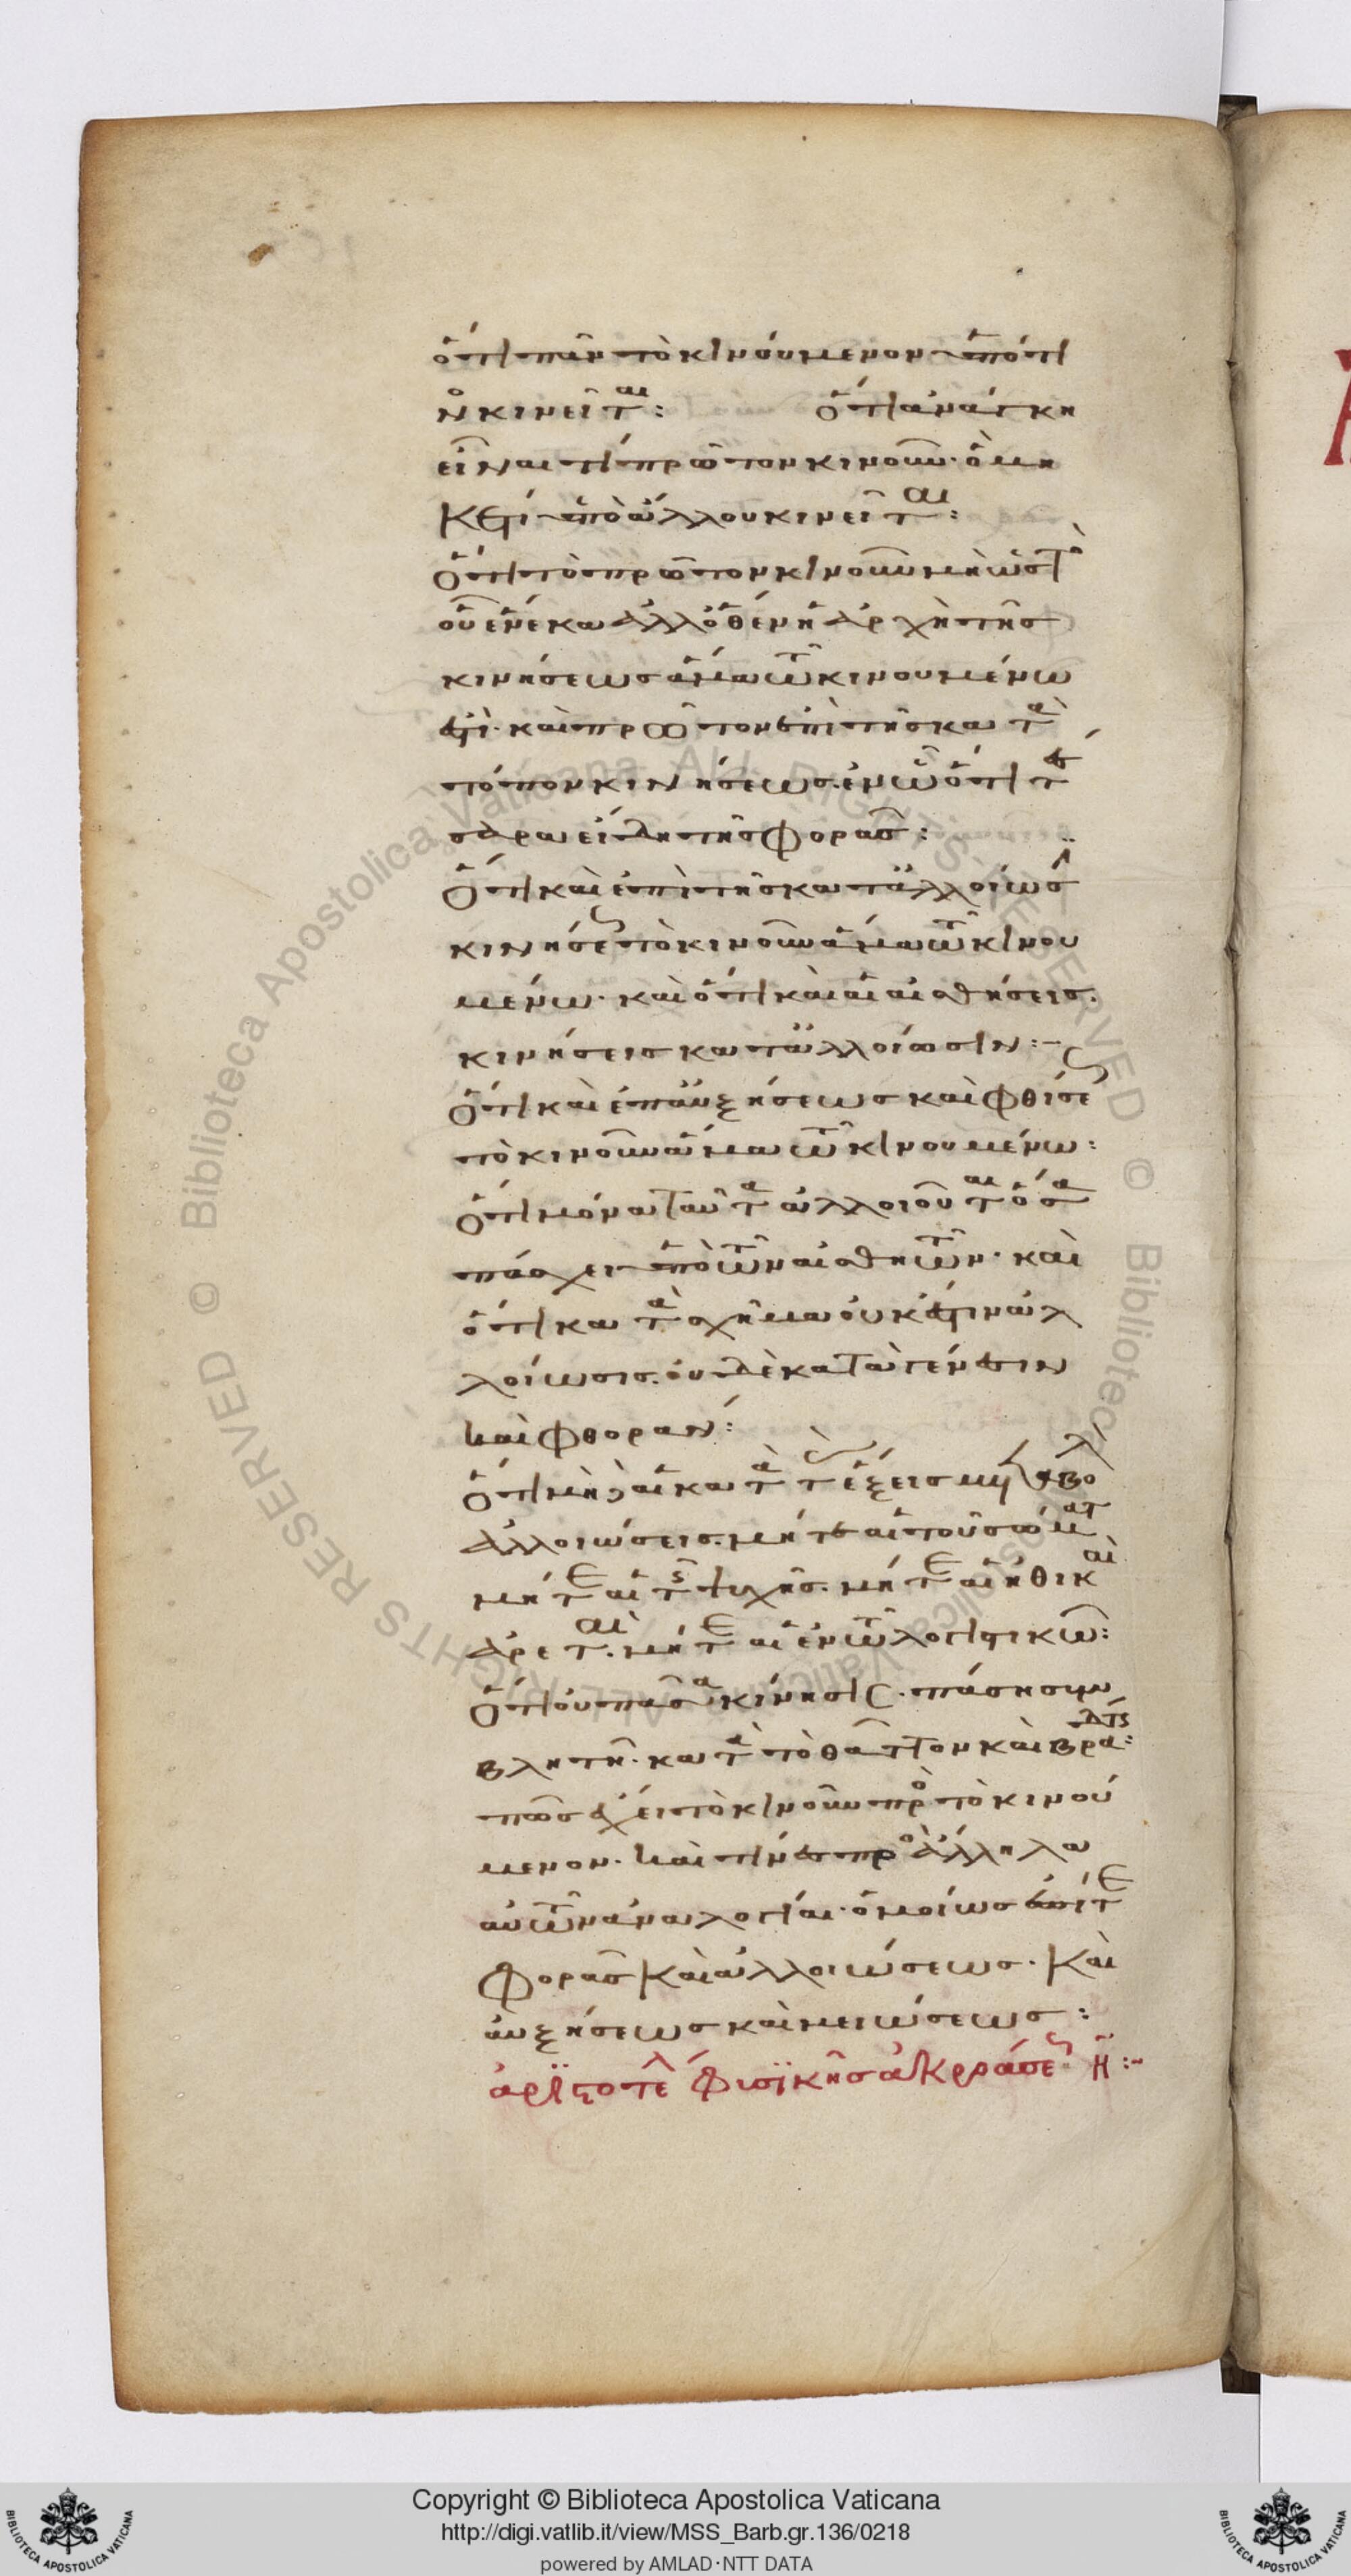 ὅτι πᾶν τὸ κινούμενον ὑπό τι
νο κινεῖται: Ὅτι ἀνάγκη
εἶναι τὶ πρῶτον κινοῦν. ὃ μη
κέτι ὑπὸ ἄλλου κινεῖται:
Ὅτι τὸ πρῶτον κινοῦν μὴ ὡς τὸ
οὗ ἕνεκα ἀλλ' ὅθεν ἡ ἀρχὴ τῆς
κινήσεως ἅμα τῶ κινουμένω
ἐστὶ. καὶ πρῶτον ἐπὶ τῆς κατὰ
τόπον κινήσεως. ἐν ᾧ ὅτι τέσ
σαρα εἴδη τῆς φορᾶς:
Ὅτι καὶ ἐπὶ τῆς κατ' ἀλλοίωσιν
κινήσεως τὸ κινοῦν ἅμα τῶ κινου
μένω. καὶ ὅτι καὶ αἱ αἰσθήσεις.
κινήσεις κατ' ἀλλοίωσιν:-
Ὅτι καὶ ἐπ' αὐξήσεως καὶ φθίσεως
τὸ κινοῦν ἅμα τῶ κινουμένω:
Ὅτι μόνα ταῦτα ἀλλοιοῦται ὅσα
πάσχει ὑπὸ τῶν αἰσθητῶν. καὶ
ὅτι κατὰ σχῆμα οὐκ ἔστιν ἀλ
λοίωσις. οὐδὲ κατὰ γένεσιν
καὶ φθοράν:
Ὅτι μὴδὲ αἱ κατὰ τὰς ἕξεις μεταβολαὶ
ἀλλοιώσεις. μήτε αἱ τοῦ σώματος
μήτε αἱ τῆς ψυχῆς. μήτε αἱ ἠθικαὶ
ἀρεταὶ. μήτε αἱ ἐν τῶ λογιστικῶ:
Ὅτι οὐ πᾶσα κίνησις. πάσῃ συμ
βλητή. κατὰ τὸ θᾶττον καὶ βραδύτερον:
πῶς ἔχει τὸ κινοῦν πρὸς τὸ κινού
μενον. καὶ τίς ἡ πρὸς ἄλληλα
αὐτῶν ἀναλογία. ὁμοίως ἐπί τε
φορᾶς καὶ ἀλλοιώσεως. καὶ
αὐξήσεως καὶ μειώσεως:
ἀριστοτέλους φυσικῆς ἀκροάσεως η:-
Copyright © Biblioteca Apostolica Vaticana
http://digi.vatlib.it/view/MSS_Barb.gr.136/0218
powered by AMLAD·NTT DATA